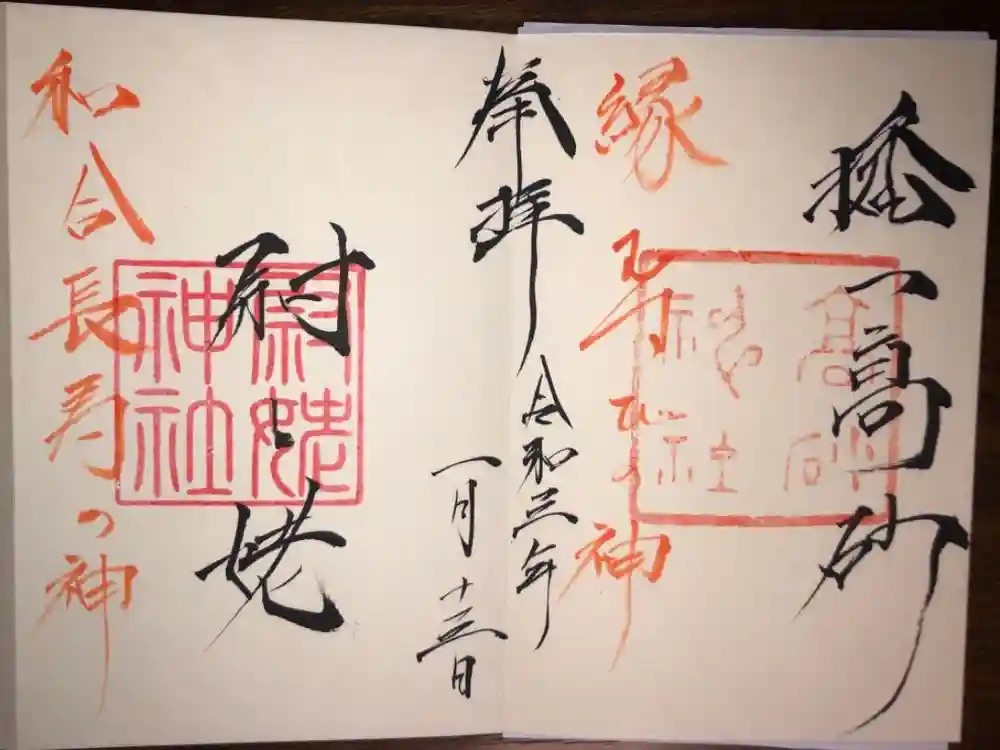 高砂
縁
びの神
奉拝
令和三年
一月十三日
尉と姥
尉姥
神社
和合長寿の神